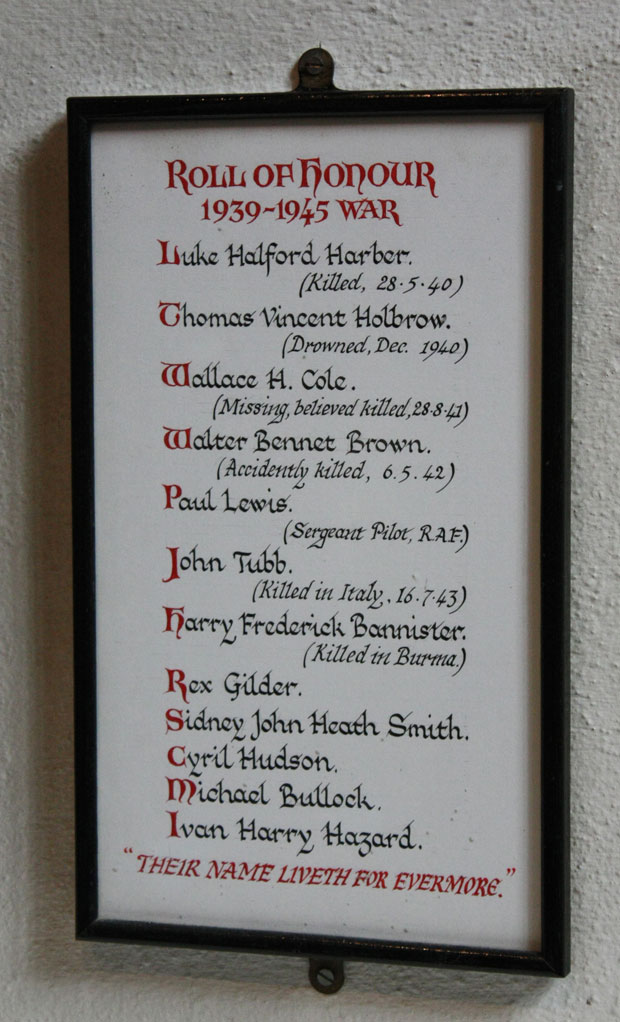 ROLL OF HONOUR
1939-1945 WAR
Luke Halford Harber.
(Killed, 28.5.40)
Thomas Vincent Holbrow.
(Drowned, Dec. 1940)
Wallace H. Cole.
(Missing, believed killed, 28.8.41)
Walter Bennet Brown.
(Accidently killed, 6.5.42)
Paul Lewis.
(Sergeant Pilot, R.A.F.)
John Tubb.
(Killed in Italy, 16.7.43)
Harry Frederick Bannister.
(Killed in Burma.)
Rex Gilder.
Sidney John Heath Smith.
Cyril Hudson.
Michael Bullock.
Ivan Harry Hazard.
"THEIR NAME LIVETH FOR EVERMORE."